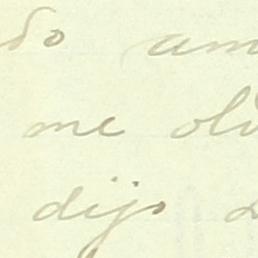 do am
me olv
dijo